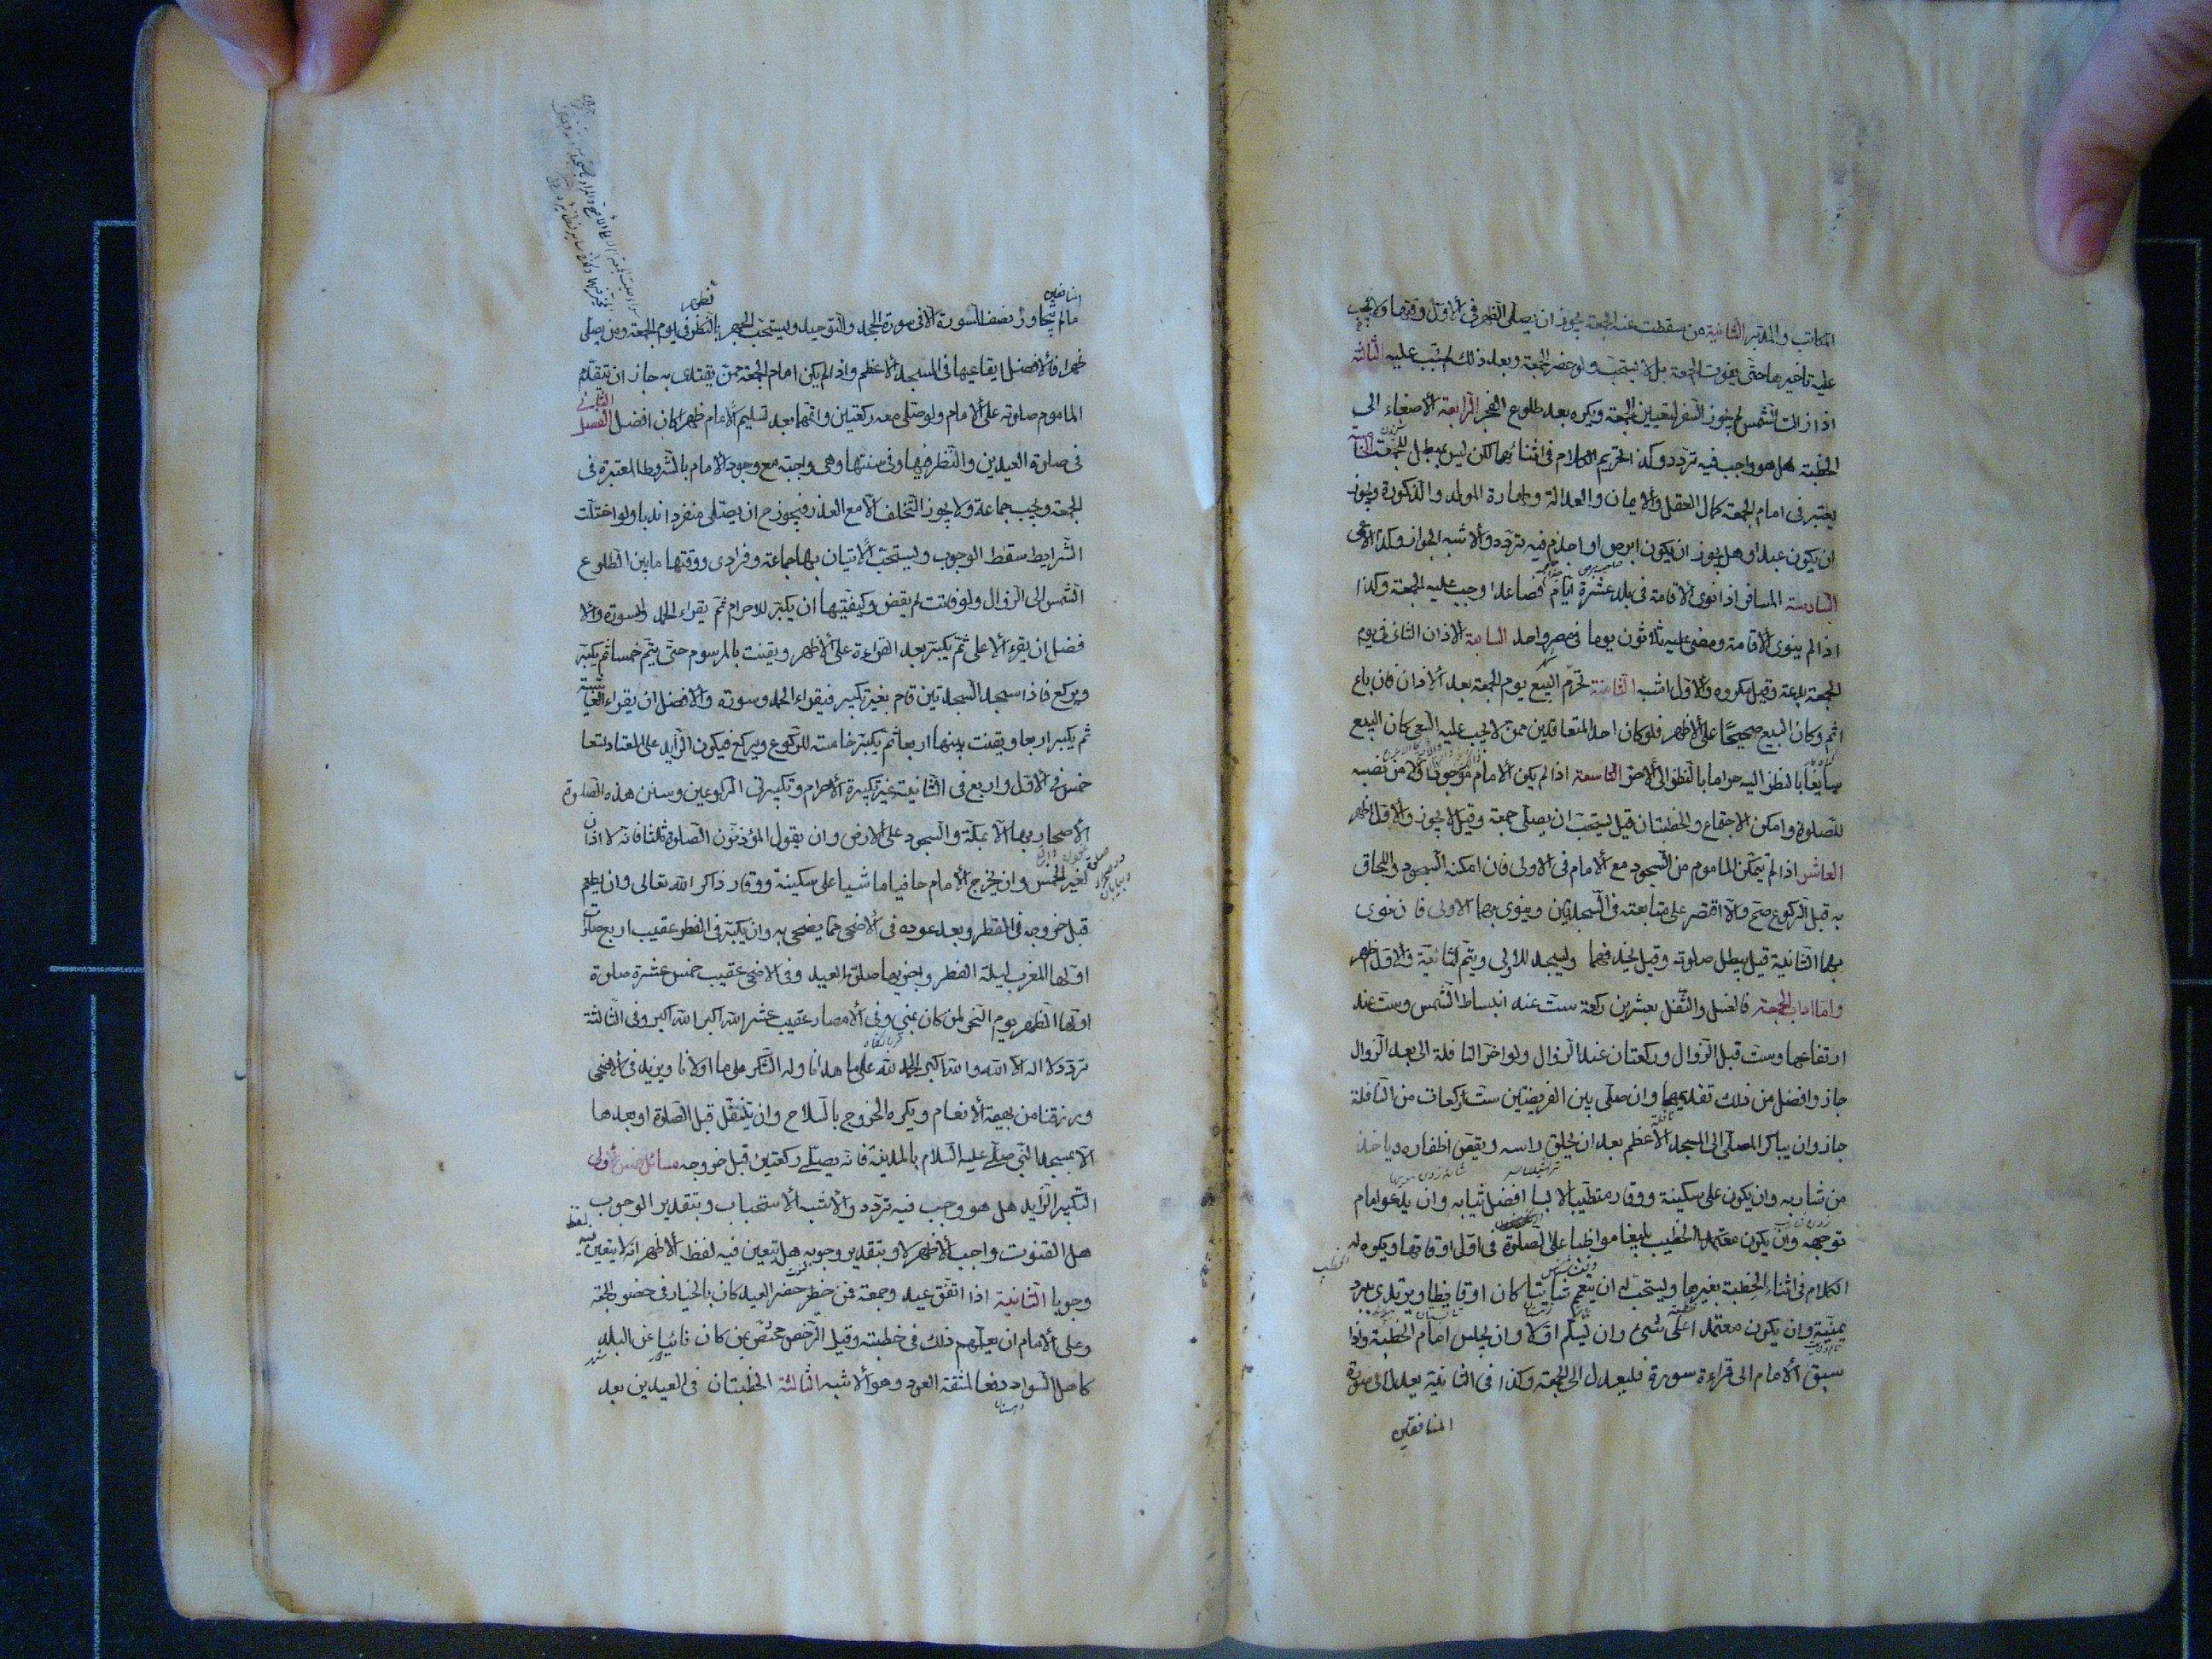 المكاتب والمدبر الثانية من سقطت عنه الجمعة يجوز ان يصلى الظهر فى الاول وقتها ولا يجب
عليه تاخيرها حتى يفوت الجمعة بل لا يستحب ولو حضر الجمعة وبعد ذلك لم تجب عليه الثالثة
اذا زالت الشمس لم يجوز السفر لتعيين الجمعة ويكره بعد طلوع الفجر الرابعة الاصغاء الى
الخطبة هل هو واجب فيه تردد وكذا تحريم الكلام فى اثنائهما لكن ليس بمبطل للجمعة الخامسة
يعتبر فى امام الجمعة كمال العقل والايمان والعدالة وطهارة المولد والذكورة ويجوز
ان يكون عبدا وهل يجوز ان يكون ابرص او اجذم فيه تردد والاشبه الجواز وكذا الاعمى
السادسة المسافر اذا نوى الاقامة فى بلد عشرة ايام فصاعدا وجب عليه الجمعة وكذا
اذا لم ينوى الاقامة ومضى عليه ثلاثون يوما فى مصر واحد السابعة الاذان الثانى فى يوم
الجمعة بدعة وقيل مكروه والاول اشبه الثامنة تحرم البيع يوم الجمعة بعد الاذان فان باع
اثم وكان البيع صحيحا على الاظهر فلو كان احد المتعاقدين ممن لا يجب عليه السعى كان البيع
سايغا بالنظر اليه حراما بالنظر الى الاخر التاسعة اذا لم يكن الامام موجودا ولا من نصبه
للصلوة وامكن الاجتماع والخطبتان قيل يستحب ان يصلى جمعة وقيل لا يجوز والاول اظهر
العاشر اذا لم يتمكن الماموم من السجود مع الامام فى الاولى فان امكنه السجود واللحاق
به قبل الركوع صح والا اقتصر على متابعته فى السجدتين وينوى بهما الاولى فان نوى
بهما الثانية قيل يبطل صلوته وقيل يحذفهما ويسجد للاولى ويتم ثانية والاول اظهر
واما اداب الجمعة فالغسل والتنفل بعشرين ركعة ست عند انبساط الشمس وست عند
ارتفاعها وست قبل الزوال وركعتان عند الزوال ولو اخر النافلة الى بعد الزوال
جاز وافضل من ذلك تقديمها وان صلى بين الفريضتين ست ركعات من النافلة
جاز وان يباكر المصلى الى المسجد الاعظم بعد ان يحلق راسه ويقص اظفاره وياخذ
من شاربه وان يكون على سكينة ووقار متطيبا لابسا افضل ثيابه وان يدعو امام
توجهه وان يكون الخطيب بليغا مواظبا على الصلوة فى اول اوقاتها ويكره له
الكلام فى اثناء الخطبة بغيرها ويستحب له ان يتعمم شاتيا كان او قايظا ويرتدى ببرد
يمنية وان يكون معتمدا على شىء وان يسلم اولا وان يجلس امام الخطبة واذا
سبق الامام الى قراءة سورة فليعدل الى الجمعة وكذا فى الثانية يعدل الى سورة
المنافقين
المنافقين
ما لم يتجاوز نصف السورة الا فى سورة الجحد والتوحيد ويستحب الجهر بالظهر فى يوم الجمعة ومن يصلى
ظهرا فالافضل ايقاعها فى المسجد الاعظم واذا لم يكن امام الجمعة ممن يقتدى به جاز ان يتقدم
الماموم صلوته على الامام ولو صلى معه ركعتين واتمها بعد تسليم الامام ظهرا كان افضل الفصل الثانى
فى صلوة العيدين والنظر فيها وفى سننها وهى واجبة مع وجود الامام بالشروط المعتبرة فى
الجمعة ويجب جماعة ولا يجوز التخلف الا مع العذر فيجوز ح ان يصلى منفردا ندبا ولو اختلت
الشرايط سقط الوجوب ويستحب الاتيان بها جماعة وفرادى ووقتها ما بين الطلوع
الشمس الى الزوال ولو فاتت لم يقض وكيفيتها ان يكبر للاحرام ثم يقراء الحمد والسورة والا
فضل ان يقرء الاعلى ثم يكبر بعد القراءة على الاظهر ويقنت بالمرسوم حتى يتم خمسا ثم يكبر
ويركع فاذا سجد السجدتين قام بغير تكبير فيقراء الحمد وسورة والافضل ان يقراء الغاشية
ثم يكبر اربعا ويقنت بينها اربعا ثم يكبر خامسة للركوع ويركع فيكون الزايد على المعتاد تسعا
خمس فى الاول واربع فى الثانية غير تكبيرة الاحرام وتكبيرتى الركوعين وسنن هذه الصلوة
الاصحار بها الا بمكة والسجود على الارض وان يقول المؤذنون الصلوة ثلثا فانه لا اذان
لغير الخمس وان يخرج الامام حافيا ماشيا على سكينة ووقار ذاكر الله تعالى وان يطعم
قبل خروجه فى الفطر وبعد عوده فى الاضحى مما يضحى به وان يكبر فى الفطر عقيب اربع صلوات
اولها المغرب ليلة الفطر واخريها صلوة العيد وفى الاضحى عقيب خمس عشرة صلوة
اولها الظهر يوم النحر لمن كان بمنى وفى الامصار عقيب عشر الله اكبر الله اكبر وفى الثالثة
تردد لا اله الا الله والله اكبر الحمد لله على ما هدانا وله الشكر على ما اولانا ويزيد فى الاضحى
ورزقنا من بهيمة الانعام ويكره الخروج بالسلاح وان يتنفل قبل الصلوة او بعدها
الا بمسجد النبى صلى عليه السلام بالمدينة فانه يصلى ركعتين قبل خروجه مسائل خمس الاولى
التكبير الزايد هل هو وجب فيه تردد والاشبه الاستحباب وبتقدير الوجوب
هل القنوت واجب الاظهر لا وبتقدير وجوبه هل يتعين فيه لفظ الاظهر انه لا يتعين فيه لفظ
وجوبا الثانية اذا اتفق عيد وجمعة فمن حضر العيد كان بالخيار فى حضور الجمعة
وعلى الامام ان يعلمهم ذلك فى خطبته وقيل الرخص مختص بمن كان نائيا عن البلد
كاهل السواد دفعا لمشقة العود وهو الاشبه الثالثة الخطبتان فى العيدين بعد